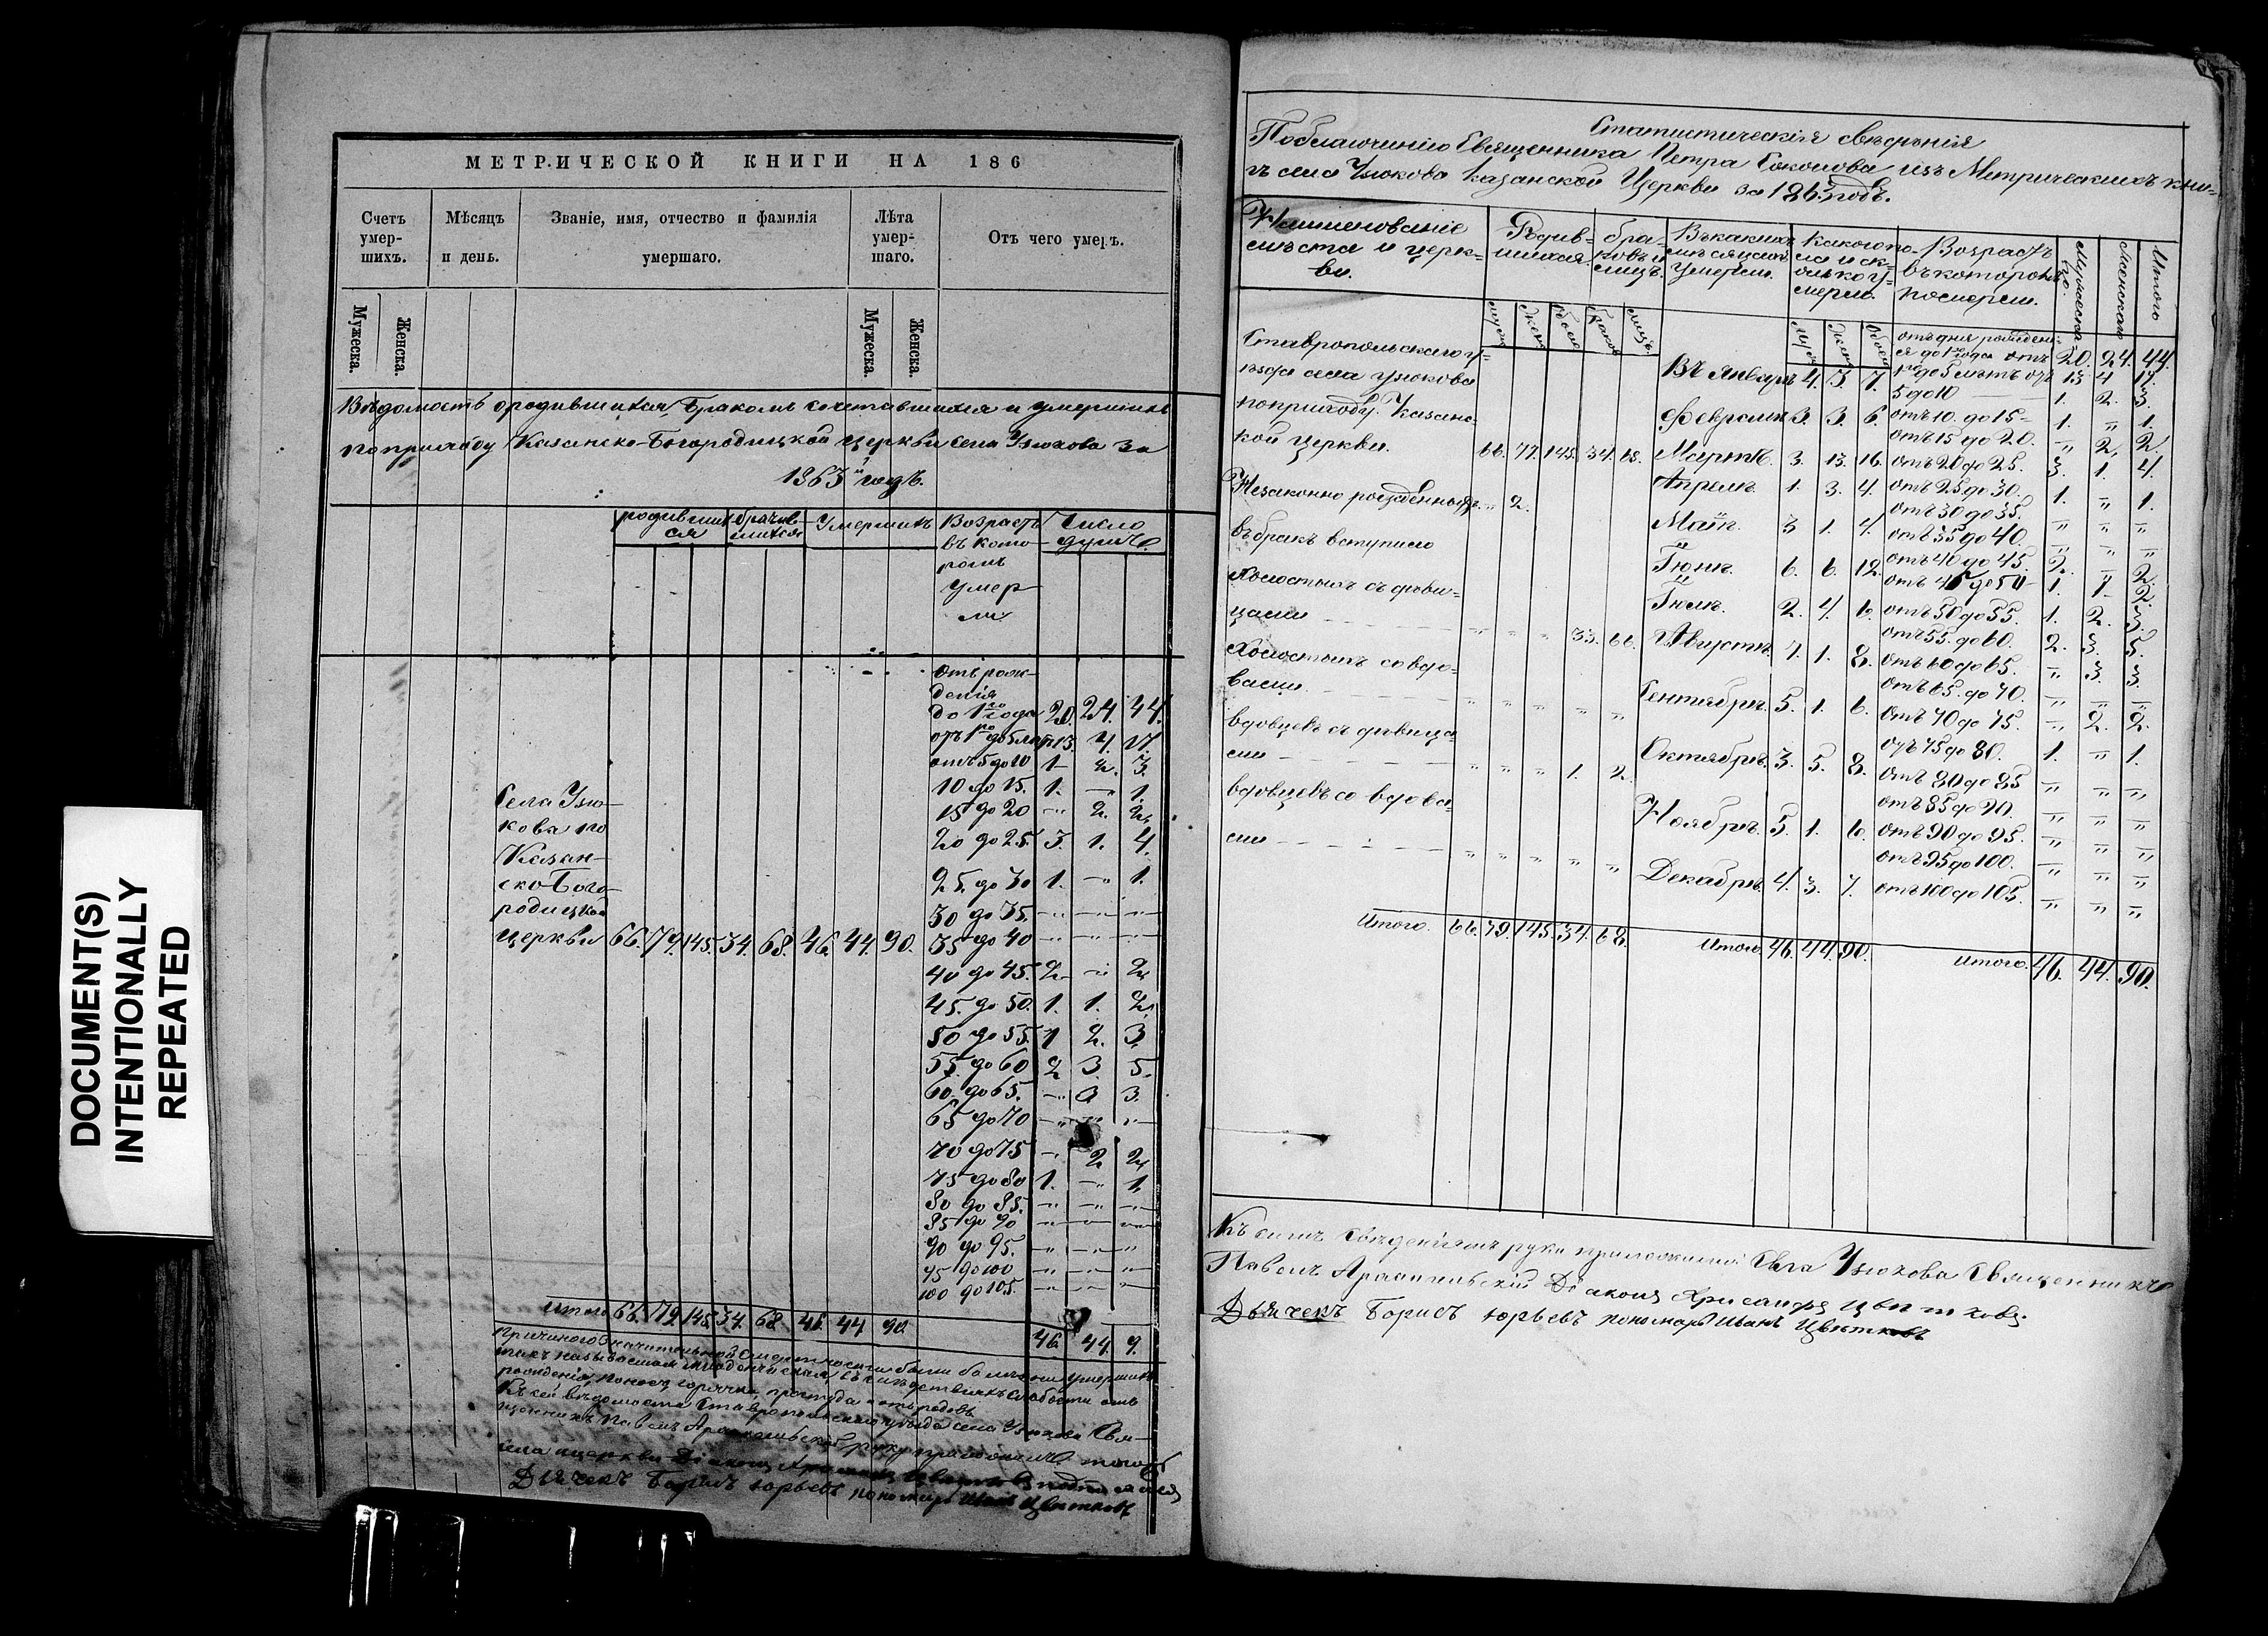 DOCUMENT(S)
INTENTIONALLY
REPEATED
МЕТРИЧЕСКОЙ КНИГИ НА 186
Счетъ умер-шихъ.
Мѣсяцъ и день.
Званіе, имя, отчество и фамилія умершаго.
Лѣта умер-шаго.
Отъ чего умеръ.
Мужеска. Женска. Мужеска. Женска.
Вѣдомость о родившихся, Бракомъ сочетавшихся и умершихъ
по приходу Казанско-Богородицкой церкви села Узюкова за
1863й годъ.
родившихся
брачив-шихся
Умершихъ
Возрастъ въ кото-ромъ умер-ли
Число душъ.
Отъ рож-
денія
до 1го года 20. 24. 44.
отъ 1го до 5 лѣтъ 13. 4. 17.
отъ 5 до 10 1 2. 3.
10 до 15. 1. — 1.
15 до 20 — 2. 2.
20 до 25. 3. 1. 4.
25. до 30 1. — 1.
30 до 35. — — —
35 до 40 — — —
40 до 45. 2. — 2.
45. до 50. 1. 1. 2.
50 до 55. 1 2. 3.
55. до 60 2 3. 5.
60. до 65. — 3 3.
65 до 70 — — —
70 до 75 — 2 2.
75 до 80 1. — 1.
80 до 85. — — —
85 до 90 — — —
90 до 95. — — —
95 до 100 — — —
100 до 105. — — —
Села Узю-
кова по
Казан-
ско Бого-
родицкой
церкви 66. 79. 145. 34. 68. 46. 44. 90.
Итого 66. 79. 145. 34. 68. 46. 44. 90. 46. 44. 9.
Дьячекъ Борисъ Юрьевъ пономарь Иванъ Цвѣтковъ
Статистическія свѣдѣнія
По благочинію Священника Петра Соколова изъ Метрическихъ кни=
гъ села Узюкова Казанской Церкви за 1863 годъ.
Наименованіе мѣста и церк=ви.
Родив=шихся
бра=ковъ и лицъ.
Въ какихъ мѣсяцахъ умерли.
Какого по-ла и ск-олько у-мерло.
Возрастъ въ которомъ померли.
Мужеска
Женска
Итого
муж. жен. обоего браковъ лицъ. муж. жен. обоего
Ставропольскаго у=
ѣзда села Узюкова
по приходу Казанс=
кой церкви. 66. 77. 143. 34. 68.
Незаконно рожденныхъ „ 2.
въ бракъ вступило
Холостыхъ съ дѣви=
цами „ „ „ 33. 66.
Холостыхъ со вдо=
вами „ „ „ „ „
вдовцевъ съ дѣвица=
ми „ „ „ 1. 2.
вдовцевъ со вдова=
ми „ „ „ „ „
Итого. 66. 79. 145. 34. 68.
Въ Январѣ 4. 3. 7.
Февралѣ 3. 3. 6.
Мартѣ. 3. 13. 16.
Апрелѣ. 1. 3. 4.
Маѣ. 3 1. 4.
Іюнѣ. 6. 6. 12.
Іюлѣ. 2. 4. 6.
Августѣ. 7. 1. 8.
Сентябрѣ. 5. 1. 6.
Октябрѣ. 3. 5. 8.
Ноябрѣ. 5. 1. 6.
Декабрѣ. 4. 3. 7.
Итого. 46. 44. 90.
отъ дня рожден-
ія до 1го года 20. 24. 44.
отъ 1го до 5 лѣтъ 13 4 17.
отъ 5 до 10 1. 2. 3.
отъ 10. до 15 1. „ 1.
отъ 15 до 20. „ 2. 2.
отъ 20 до 25. 3. 1. 4.
отъ 25 до 30. 1. „ 1.
отъ 30 до 35. „ „ „
отъ 35 до 40. „ „ „
отъ 40 до 45. 2. „ 2.
отъ 45 до 50 1. 1. 2.
отъ 50 до 55. 1. 2. 3.
отъ 55. до 60. 2. 3. 5.
отъ 60 до 65. „ 3. 3.
отъ 65. до 70. „ „ „
отъ 70 до 75. „ 2. 2.
отъ 75 до 80. 1. „ 1.
отъ 80 до 85 „ „ „
отъ 85 до 90. „ „ „
отъ 90 до 95. „ „ „
отъ 95 до 100. „ „ „
отъ 100 до 105. „ „ „
Итого. 46. 44. 90.
Къ симъ Свѣденіямъ руки приложили: Села Узюкова Священникъ
Павелъ Діаконъ Хрисанфъ Цвѣтковъ.
Дьячекъ Борисъ Юрьевъ пономарь Иванъ Цвѣтковъ